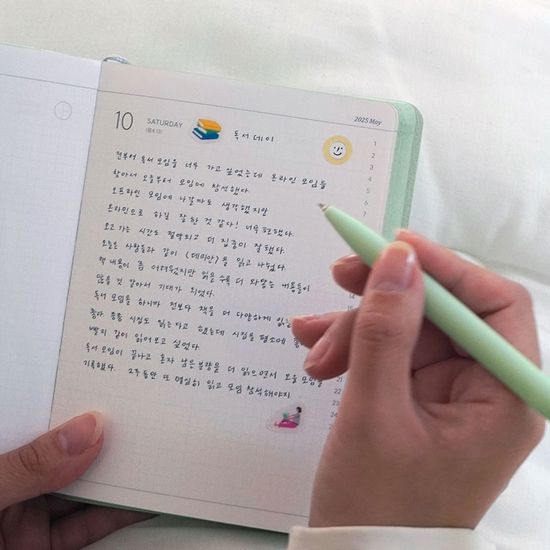 2025 May
10 SATURDAY
(음4.13)
독서 데이
전부터 독서 모임을 너무 가고 싶었는데 온라인 모임을
찾아서 오늘부터 모임에 참석했다.
오프라인 모임에 나갈까도 생각했지만
온라인으로 하길 잘 한 것 같다! 너무 편했다.
오고 가는 시간도 절약되고 더 집중이 잘 됐다.
오늘은 사람들과 같이 <데미안>을 읽고 나눴다.
책 내용이 좀 어려웠지만 읽을수록 더 와닿는 내용들이
많을 것 같아서 기대가 되었다.
독서 모임을 하니까 전보다 책을 더 다양하게
좋다. 종종 시집도 읽는다고 했는데 시집을 평소에
빨리 같이 읽어보고 싶었다.
독서 모임이 끝나고 혼자 남은 분량을 더 읽으면서 오늘 모임을
기록했다. 2주 동안 또 열심히 읽고 모임 참석해야지.
1
2
3
4
5
6
7